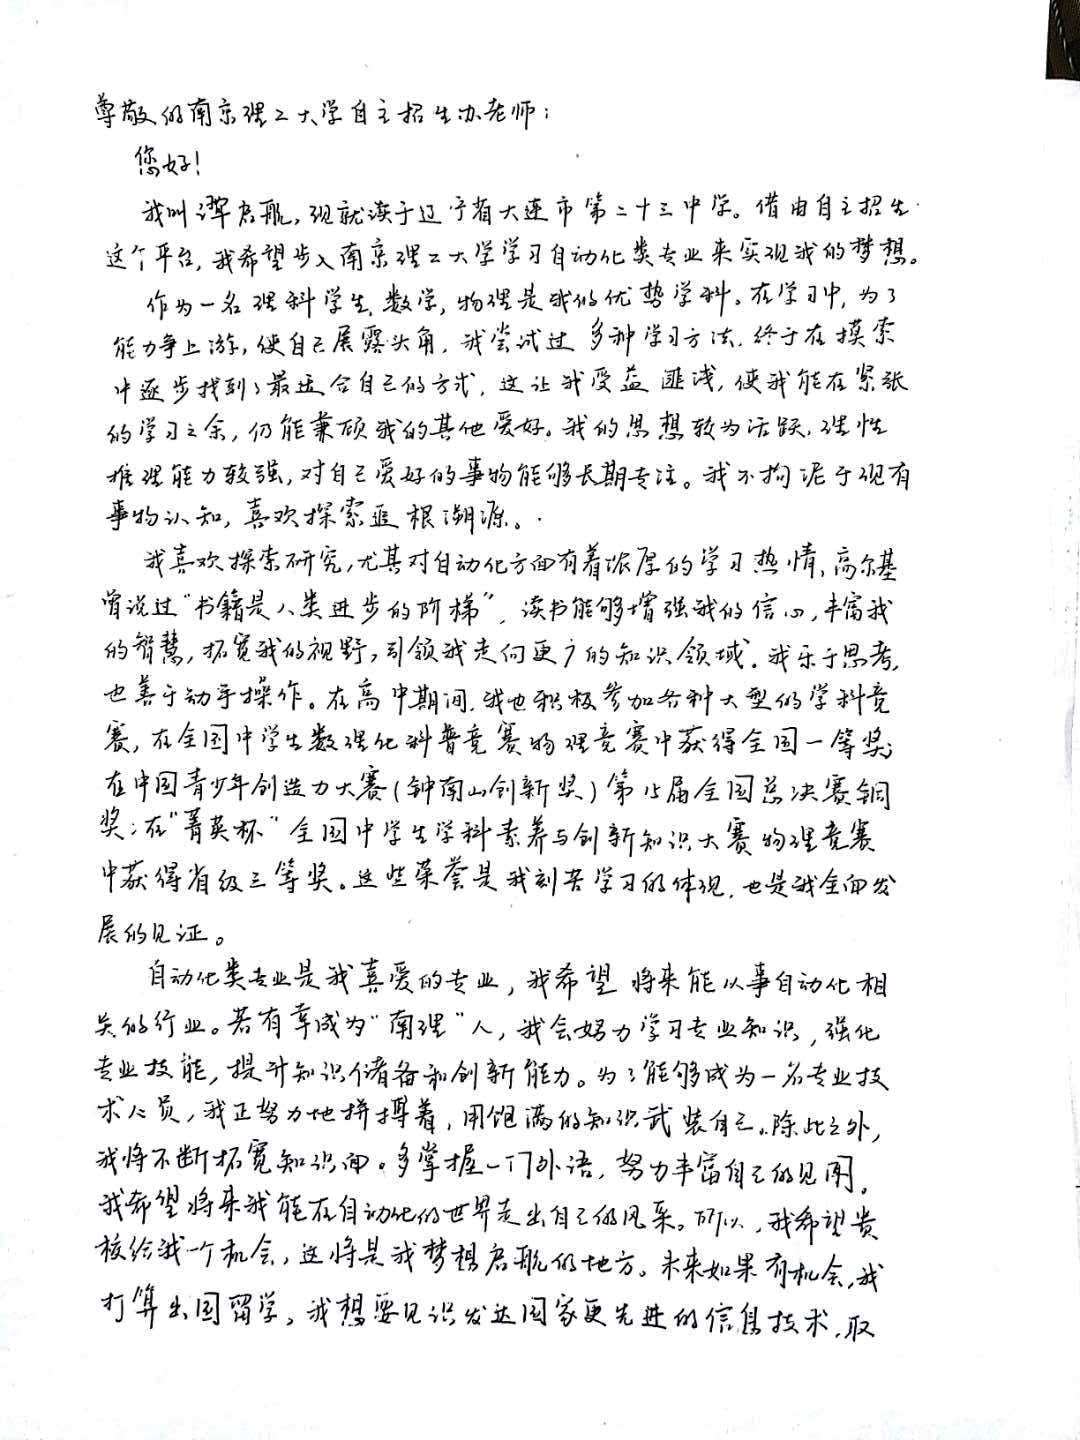 尊敬的南京理工大学自主招生办老师：
您好！
我叫谭启航，现就读于辽宁省大连市第二十三中学。借由自主招生
这个平台，我希望步入南京理工大学学习自动化类专业来实现我的梦想。
作为一名理科学生，数学，物理是我的优势学科。在学习中，为了
能力争上游，使自己展露头角，我尝试过多种学习方法，终于在摸索
中逐步找到了最适合自己的方式，这让我受益匪浅，使我能在紧张
的学习之余，仍能兼顾我的其他爱好。我的思想较为活跃，理性
推理能力较强，对自己爱好的事物能够长期专注。我不拘泥于现有
事物认知，喜欢探索追根溯源。
我喜欢探索研究，尤其对自动化方面有着浓厚的学习热情，高尔基
曾说过“书籍是人类进步的阶梯”，读书能够增强我的信心，丰富我
的智慧，拓宽我的视野，引领我走向更广的知识领域。我乐于思考，
也善于动手操作。在高中期间，我也积极参加各种大型的学科竞
赛，在全国中学生数理化科普竞赛物理竞赛中获得全国一等奖；
在中国青少年创造力大赛（钟南山创新奖）第15届全国总决赛铜
奖；在“菁英杯”全国中学生学科素养与创新知识大赛物理竞赛
中获得省级三等奖。这些荣誉是我刻苦学习的体现，也是我全面发
展的见证。
自动化类专业是我喜爱的专业，我希望将来能从事自动化相
关的行业。若有幸成为“南理”人，我会努力学习专业知识，强化
专业技能，提升知识储备和创新能力。为了能够成为一名专业技
术人员，我正努力地拼搏着，用饱满的知识武装自己。除此之外，
我将不断拓宽知识面。多掌握一门外语，努力丰富自己的见闻。
我希望将来我能在自动化的世界走出自己的风采。所以，我希望贵
校给我一个机会，这将是我梦想启航的地方。未来如果有机会，我
打算出国留学。我想要见识发达国家更先进的信息技术，取